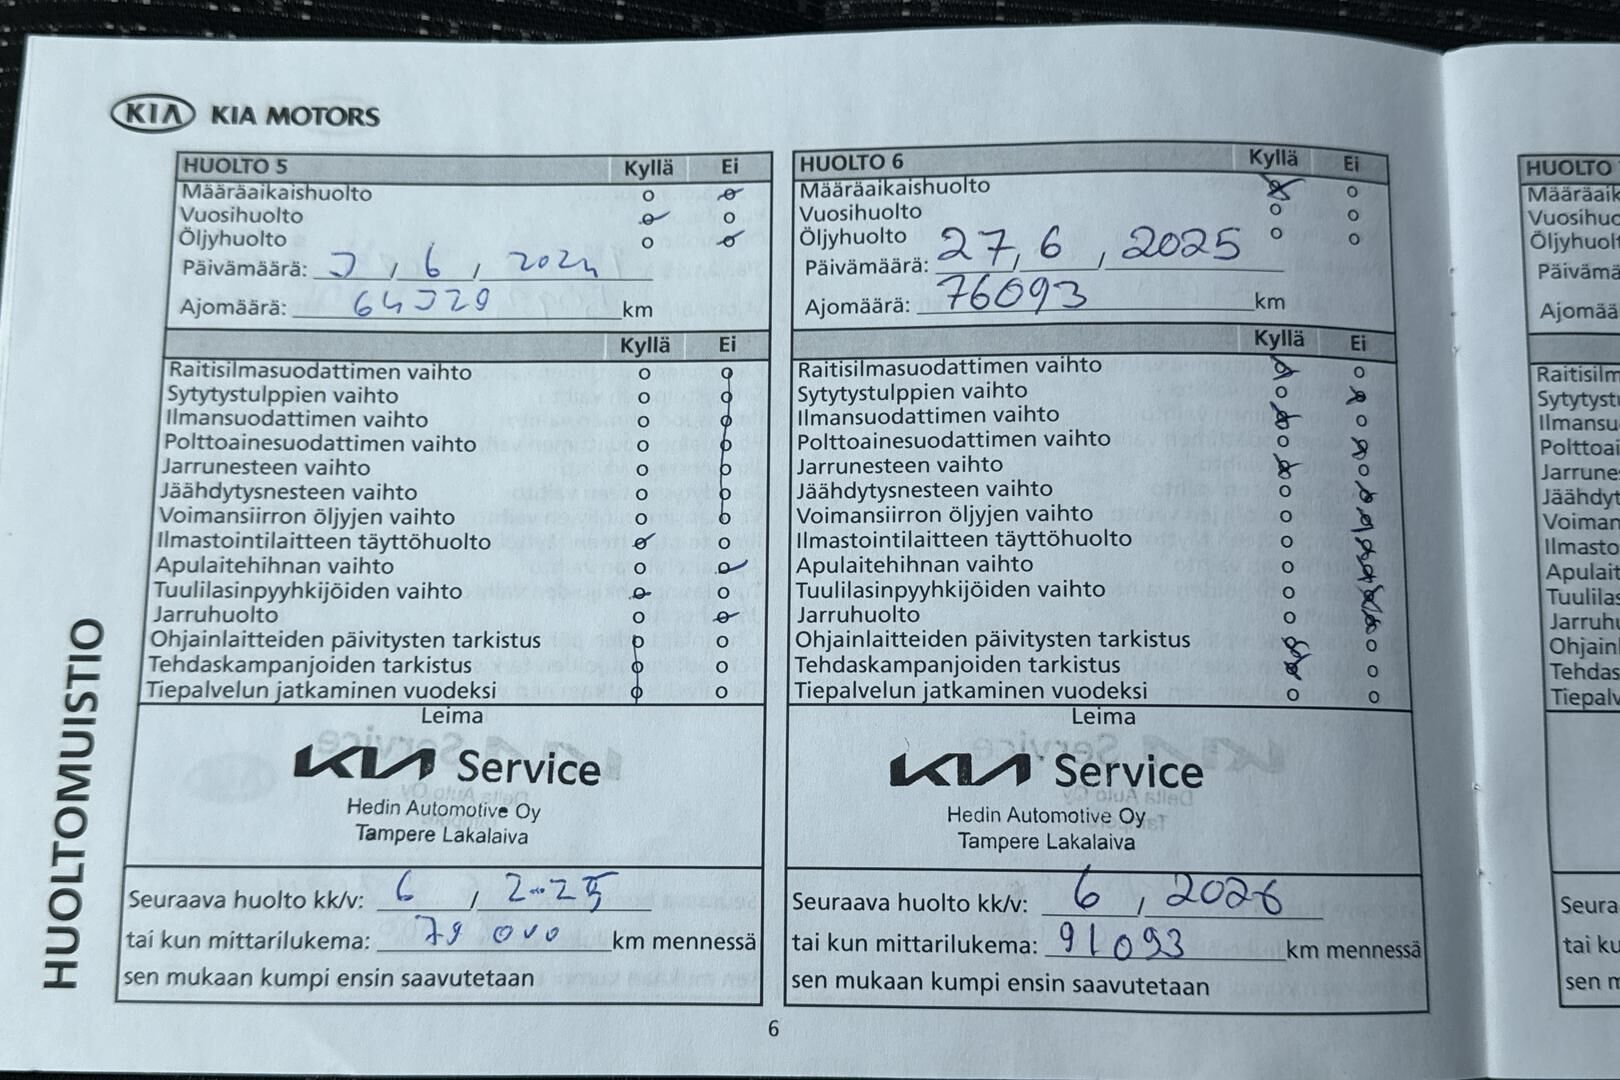 KIA KIA MOTORS
HUOLTO 5 Kyllä Ei
Määräaikaishuolto
Vuosihuolto
Öljyhuolto
Päivämäärä: 6 2024
Ajomäärä: km
Kyllä Ei
Raitisilmasuodattimen vaihto
Sytytystulppien vaihto
Ilmansuodattimen vaihto
Polttoainesuodattimen vaihto
Jarrunesteen vaihto
Jäähdytysnesteen vaihto
Voimansiirron öljyjen vaihto
Ilmastointilaitteen täyttöhuolto
Apulaitehihnan vaihto
Tuulilasinpyyhkijöiden vaihto
Jarruhuolto
Ohjainlaitteiden päivitysten tarkistus
Tehdaskampanjoiden tarkistus
Tiepalvelun jatkaminen vuodeksi
Leima
KIA Service
Hedin Automotive Oy
Tampere Lakalaiva
Seuraava huolto kk/v: 6 / 2025
tai kun mittarilukema: 79 000 km mennessä
sen mukaan kumpi ensin saavutetaan
HUOLTO 6 Kyllä Ei
Määräaikaishuolto
Vuosihuolto
Öljyhuolto
Päivämäärä: 27, 6, 2025
Ajomäärä: 76093 km
Kyllä Ei
Raitisilmasuodattimen vaihto
Sytytystulppien vaihto
Ilmansuodattimen vaihto
Polttoainesuodattimen vaihto
Jarrunesteen vaihto
Jäähdytysnesteen vaihto
Voimansiirron öljyjen vaihto
Ilmastointilaitteen täyttöhuolto
Apulaitehihnan vaihto
Tuulilasinpyyhkijöiden vaihto
Jarruhuolto
Ohjainlaitteiden päivitysten tarkistus
Tehdaskampanjoiden tarkistus
Tiepalvelun jatkaminen vuodeksi
Leima
KIA Service
Hedin Automotive Oy
Tampere Lakalaiva
Seuraava huolto kk/v: 6, 2026
tai kun mittarilukema: 91093 km mennessä
sen mukaan kumpi ensin saavutetaan
HUOLTOMUISTIO
6
HUOLTO
Määräaik
Vuosihuo
Öljyhuol
Päivämä
Ajomää
Raitisilm
Sytytyst
Ilmansu
Polttoai
Jarrune
Jäähdyt
Voiman
Ilmasto
Apulait
Tuulilas
Jarruh
Ohjain
Tehdas
Tiepalv
Seura
tai ku
sen m